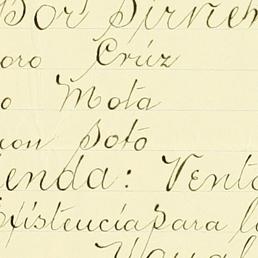 Por Sirvien
oro Cruz
o Mota
ion Soto
ienda: Vent
Existencia para l